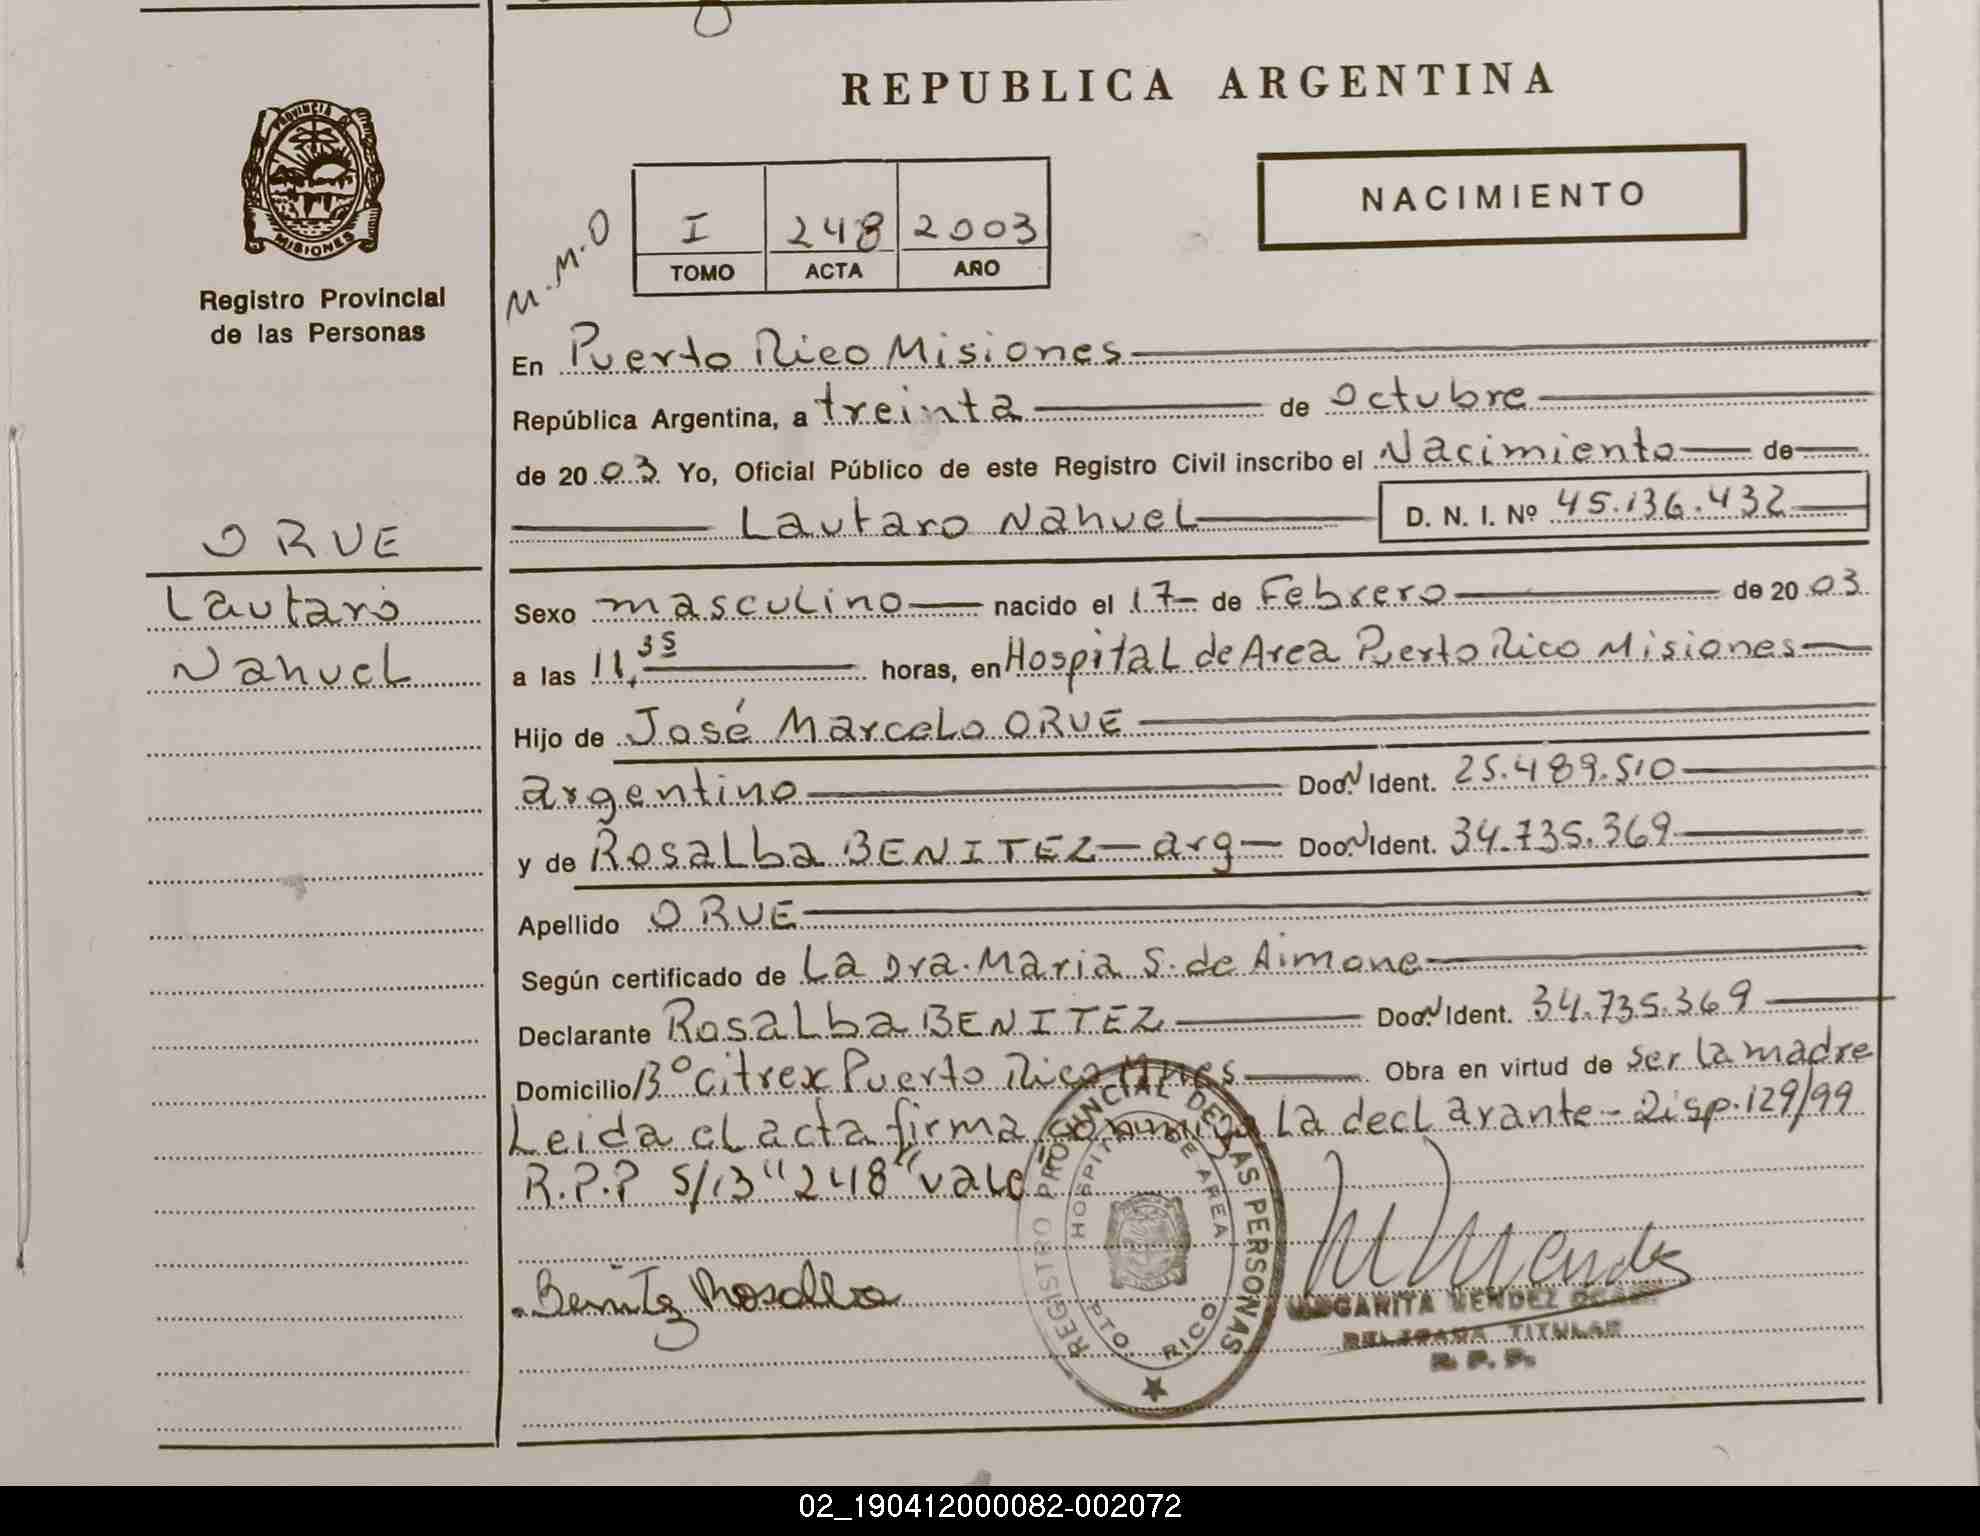 REPUBLICA ARGENTINA
PROVINCIA DE
MISIONES
Registro Provincial
de las Personas
NACIMIENTO
M.M.O
I 248 2003
TOMO ACTA AÑO
En Puerto Rico Misiones
República Argentina, a treinta de octubre
de 2003 Yo, Oficial Público de este Registro Civil inscribo el Nacimiento de
Lautaro Nahuel D. N. I. Nº 45.136.432
ORUE
Lautaro
Nahuel
Sexo masculino nacido el 17 de Febrero de 2003
a las 11,35 horas, en Hospital de Area Puerto Rico Misiones
Hijo de José Marcelo ORUE
argentino Doc. N Ident. 25.489.510
y de Rosalba BENITEZ - arg - Doc. N Ident. 34.735.369
Apellido ORUE
Según certificado de La Dra. Maria S. de Aimone
Declarante Rosalba BENITEZ Doc. N Ident. 34.735.369
Domicilio Bº Citrex Puerto Rico Mnes Obra en virtud de ser la madre
Leida el acta firma conmigo La declarante - Disp. 129/99
R.P.P S/B "248" vale
REGISTRO PROVINCIAL DE LAS PERSONAS
HOSPITAL DE AREA
PTO RICO
Benitez Rosalba
M Mendez
MARGARITA MENDEZ
DELEGADA TITULAR
R. P. P.
02_190412000082-002072